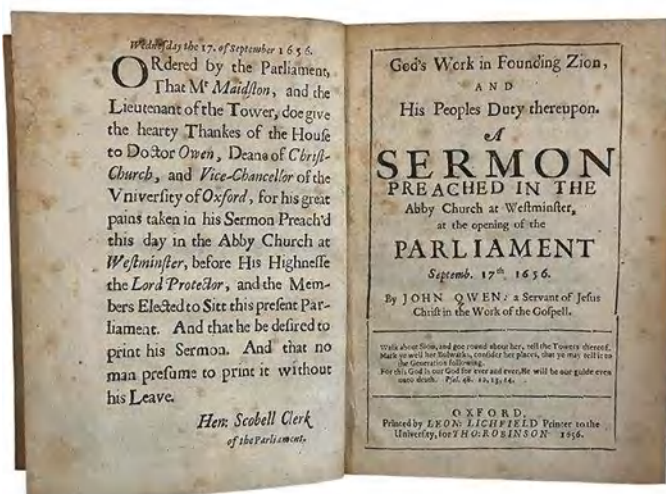 Wednesday the 17. of September 1656.
ORdered by the Parliament,
That Mr Maidston, and the
Lieutenant of the Tower, doe give
the hearty Thankes of the House
to Doctor Owen, Deane of Christ-
Church, and Vice-Chancellor of the
Vniversity of Oxford, for his great
pains taken in his Sermon Preach'd
this day in the Abby Church at
Westminster, before His Highnesse
the Lord Protector, and the Mem-
bers Elected to Sitt this present Par-
liament. And that he be desired to
print his Sermon. And that no
man presume to print it without
his Leave.
Hen: Scobell Clerk
of the Parliament.
God's Work in Founding Zion,
AND
His Peoples Duty thereupon.
A
SERMON
PREACHED IN THE
Abby Church at Westminster,
at the opening of the
PARLIAMENT
Septemb. 17th 1656.
By JOHN OWEN: a Servant of Jesus
Christ in the Work of the Gospell.
Walk about Sion, and goe round about her, tell the Towers thereof,
Mark ye well her Bulwarks, consider her places, that ye may tell it to
the Generation following.
For this God is our God for ever and ever, He will be our guide even
unto death. Psal. 48. 12, 13, 14.
OXFORD,
Printed by LEON: LICHFIELD Printer to the
University, for THO: ROBINSON 1656.